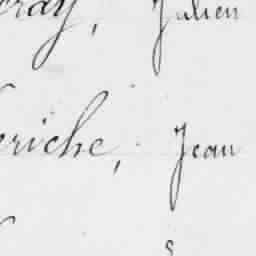 ray, Julien
eriche, Jean